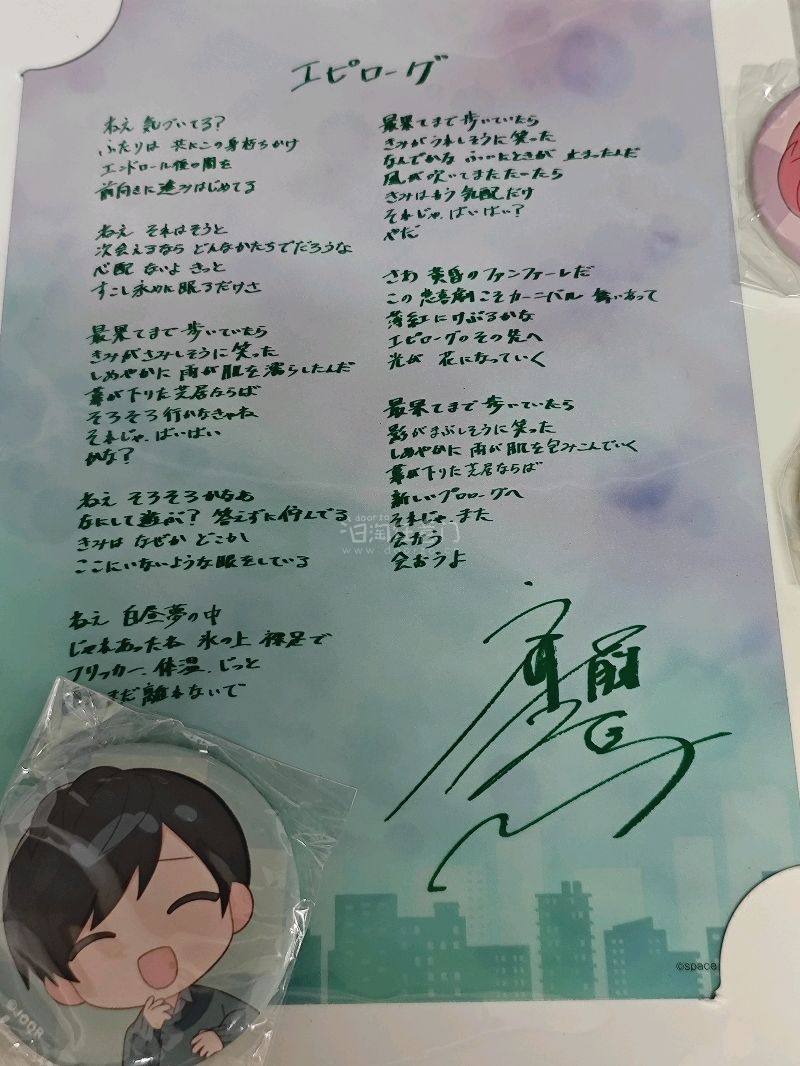 エピローグ
ねえ 気づいてる?
ふたりは 共にこの身朽ちかけ
エンドロール後の闇を
前向きに進みはじめてる
ねえ それはそうと
次会えるなら どんなかたちでだろうな
心配 ないよ きっと
すこし永めに眠るだけさ
最果てまで歩いていたら
きみがさみしそうに笑った
しめやかに 雨が肌を濡らしたんだ
幕が下りた芝居ならば
そろそろ行かなきゃね
それじゃ、ばいばい
かな?
ねえ そろそろかなあ
なにして遊ぶ? 答えずに佇んでる
きみは なぜか どこか
ここにいないような眼をしている
ねえ 白昼夢の中
じゃれあったね 氷の上 裸足で
フリッカー、体温、じっと
まだ離れないで
最果てまで歩いていたら
きみがうれしそうに笑った
なんでかな ふいにときが 止まったんだ
風が吹いてまたたいたら
きみはもう 気配だけ
それじゃ、ばいばい?
やだ
さあ 黄昏のファンファーレだ
この悲喜劇こそカーニバル 舞いあって
薄紅にけぶるかな
エピローグのその先へ
光が 花になっていく
最果てまで 歩いていたら
影がまぶしそうに笑った
しめやかに 雨が肌を包みこんでいく
幕が下りた芝居ならば
新しいプロローグへ
それじゃ、また
会おう
会おうよ
©space
©JOQR